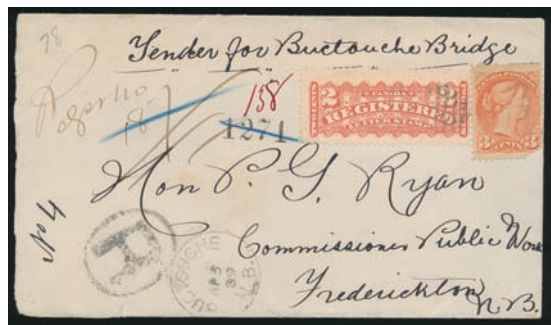 78
Tender for Buctouche Bridge
Registered
18
158
1271
2 CANADA 2
REGISTERED
3 CENTS 3
Hon P. G. Ryan
Commissioner Public Works
Frederickton
N.B.
No 4
R
BUCTOUCHE
N.B.
89